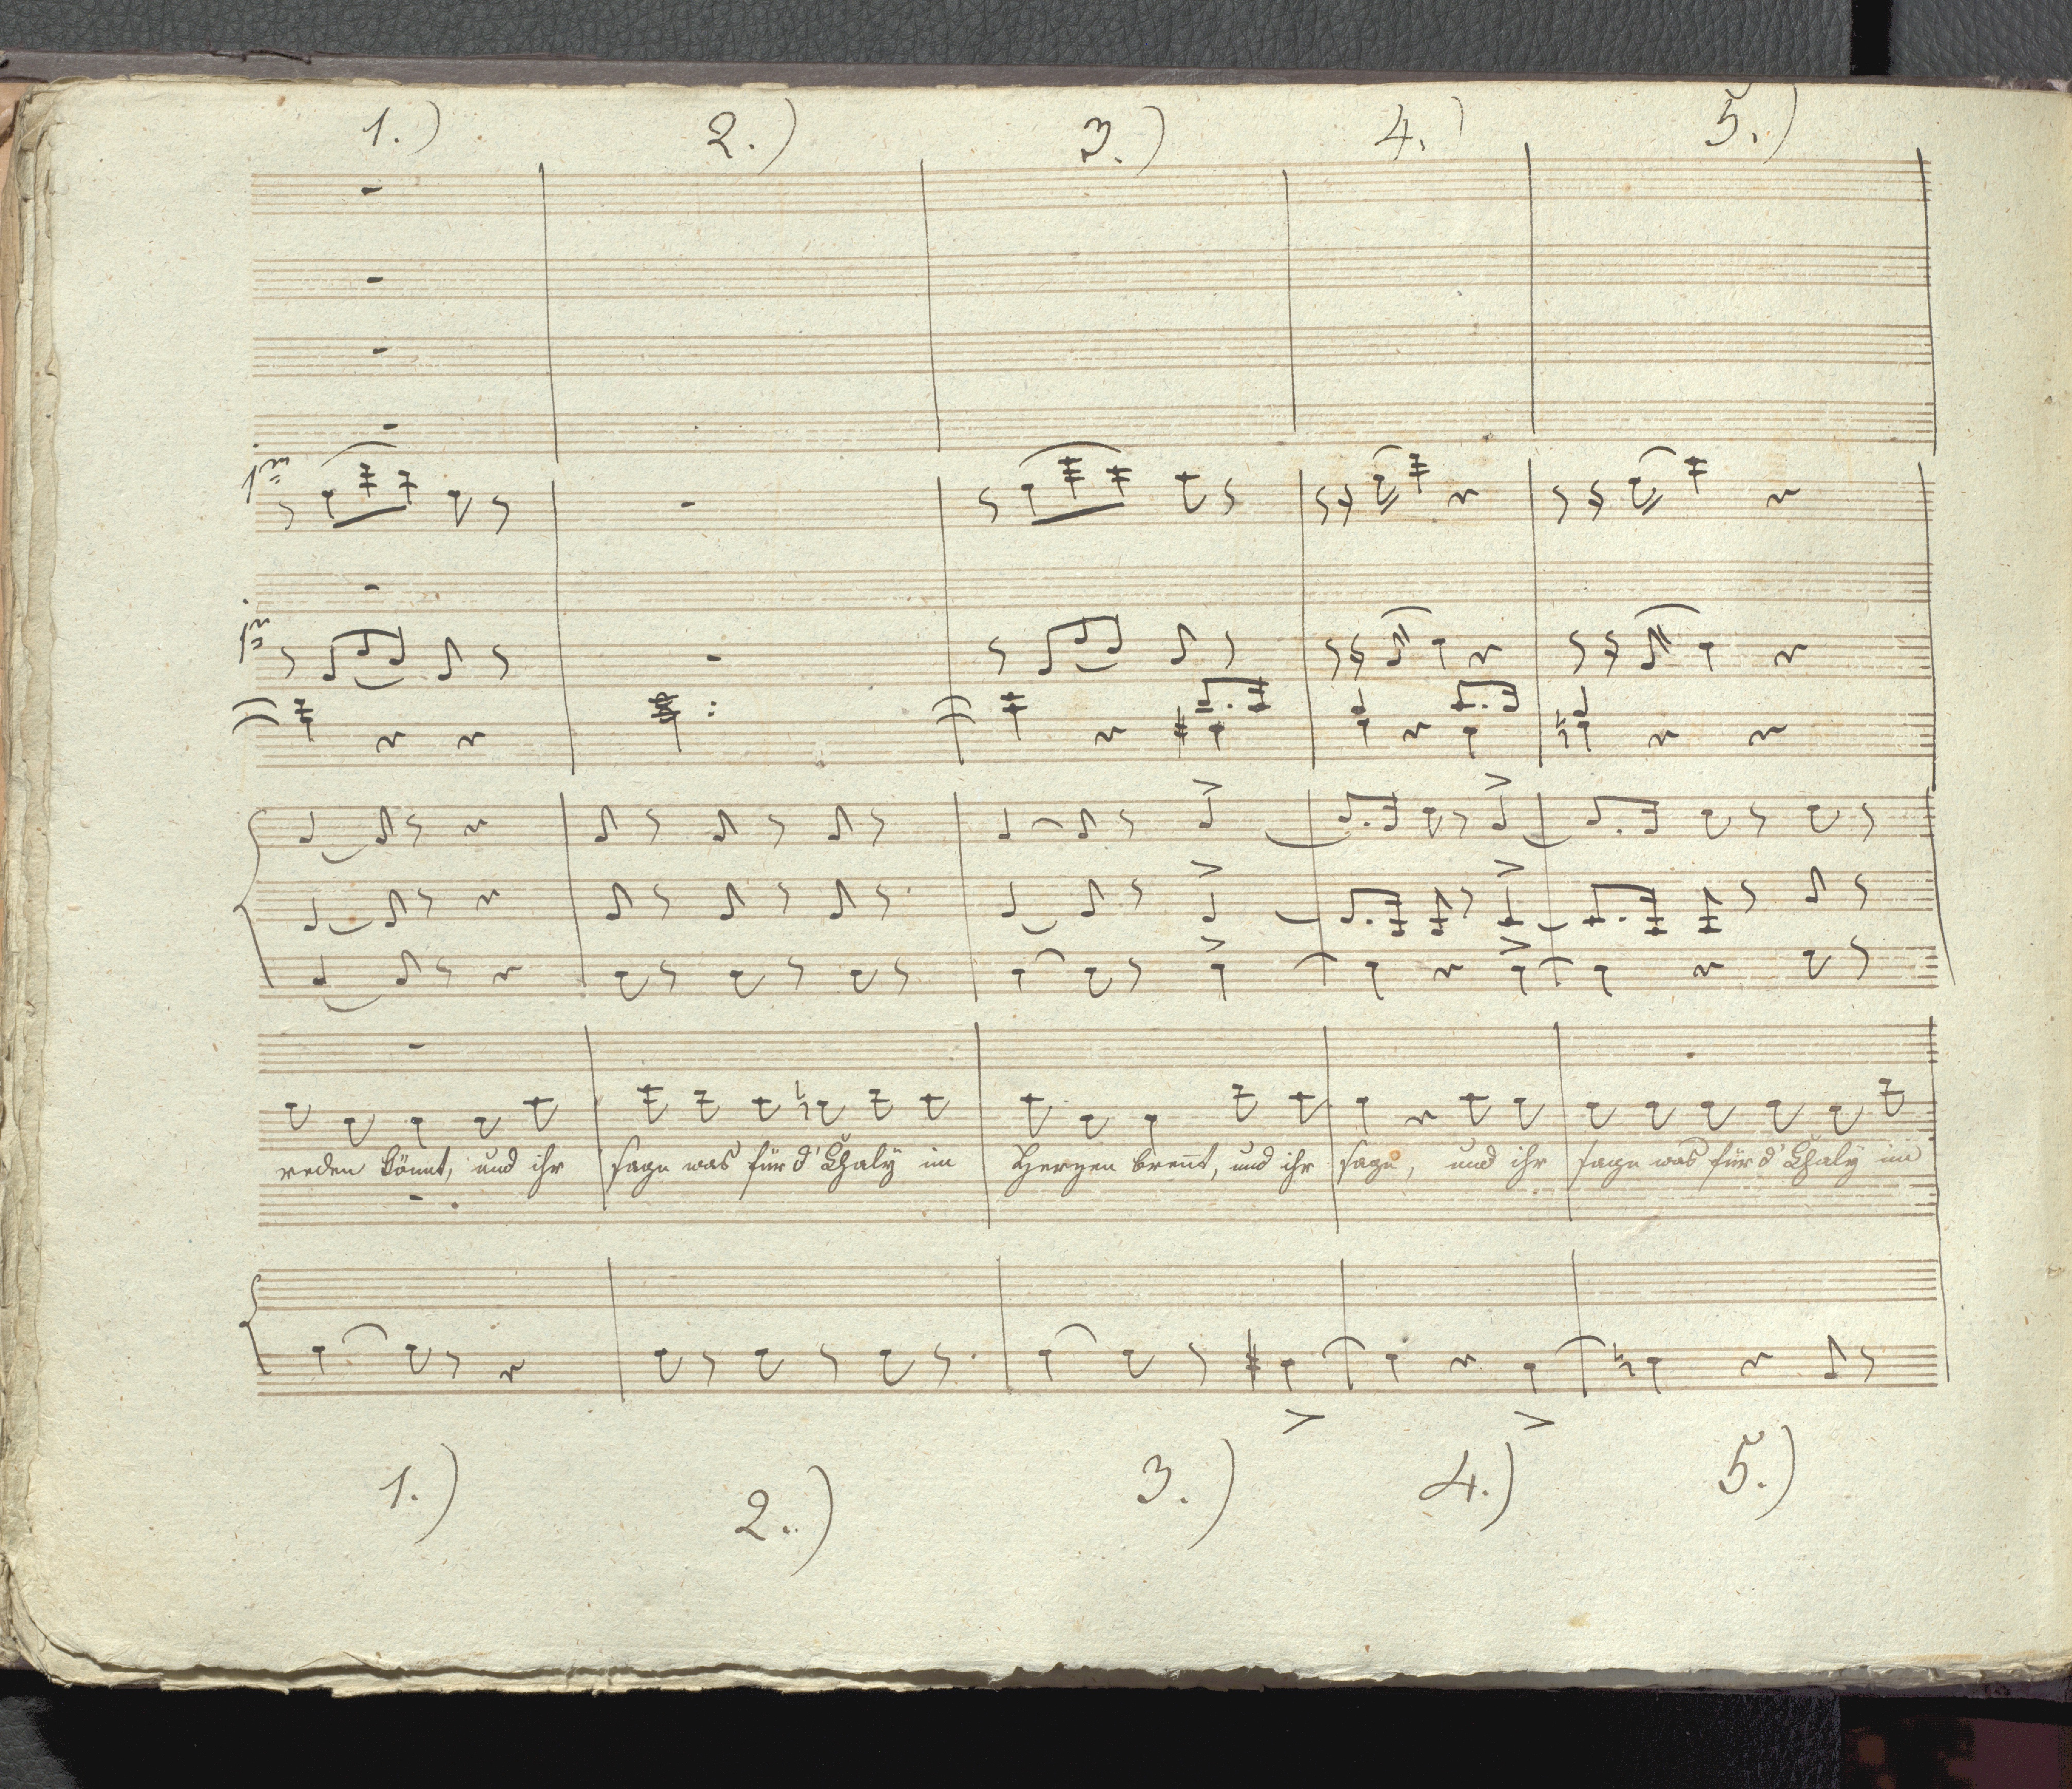 1.) 2.) 3.) 4.) 5.)
1mo
1mo
reden könnt, und ihr sage was für d' Chaly im Herzen brennt, und ihr sage, und ihr sage was für d' Chaly im
1.) 2.) 3.) 4.) 5.)